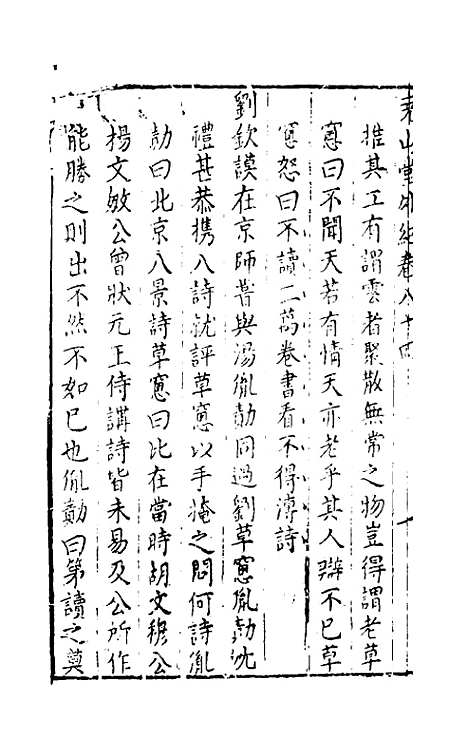 堯山堂外紀卷八十四
推其工有謂雲者聚散無常之物豈得謂老草
窓曰不聞天若有情天亦老乎其人辯不已草
窓怒曰不讀二萬卷書看不得溥詩
劉欽謨在京師嘗與湯胤勣同過劉草窓胤勣沈
禮甚恭攜八詩就評草窓以手掩之問何詩胤
勣曰北京八景詩草窓曰比在當時胡文穆公
楊文敏公曾狀元王侍講詩皆未易及公所作
能勝之則出不然不如已也胤勣曰第讀之莫